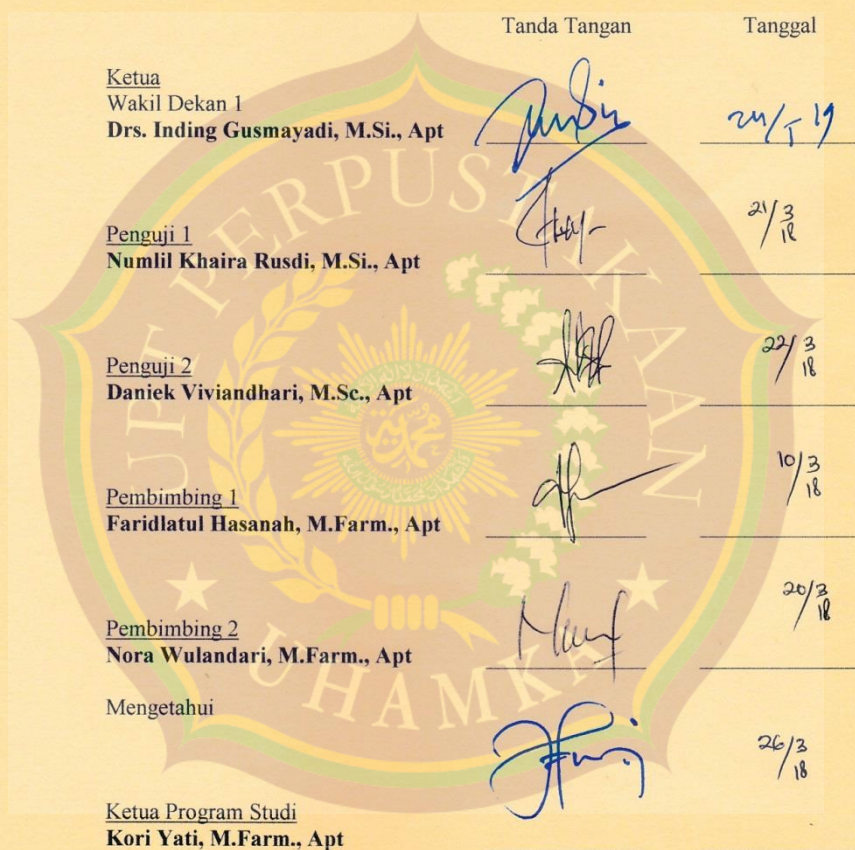 Tanda Tangan Tanggal
Ketua
Wakil Dekan 1
Drs. Inding Gusmayadi, M.Si., Apt
Penguji 1
21/3 18
Numlil Khaira Rusdi, M.Si., Apt
Penguji 2
22/3 18
Daniek Viviandhari, M.Sc., Apt
Pembimbing 1
10/3 18
Faridlatul Hasanah, M.Farm., Apt
Pembimbing 2
20/3 18
Nora Wulandari, M.Farm., Apt
Mengetahui
26/3 18
Ketua Program Studi
Kori Yati, M.Farm., Apt
UPT PERPUSTAKAAN
UHAMKA